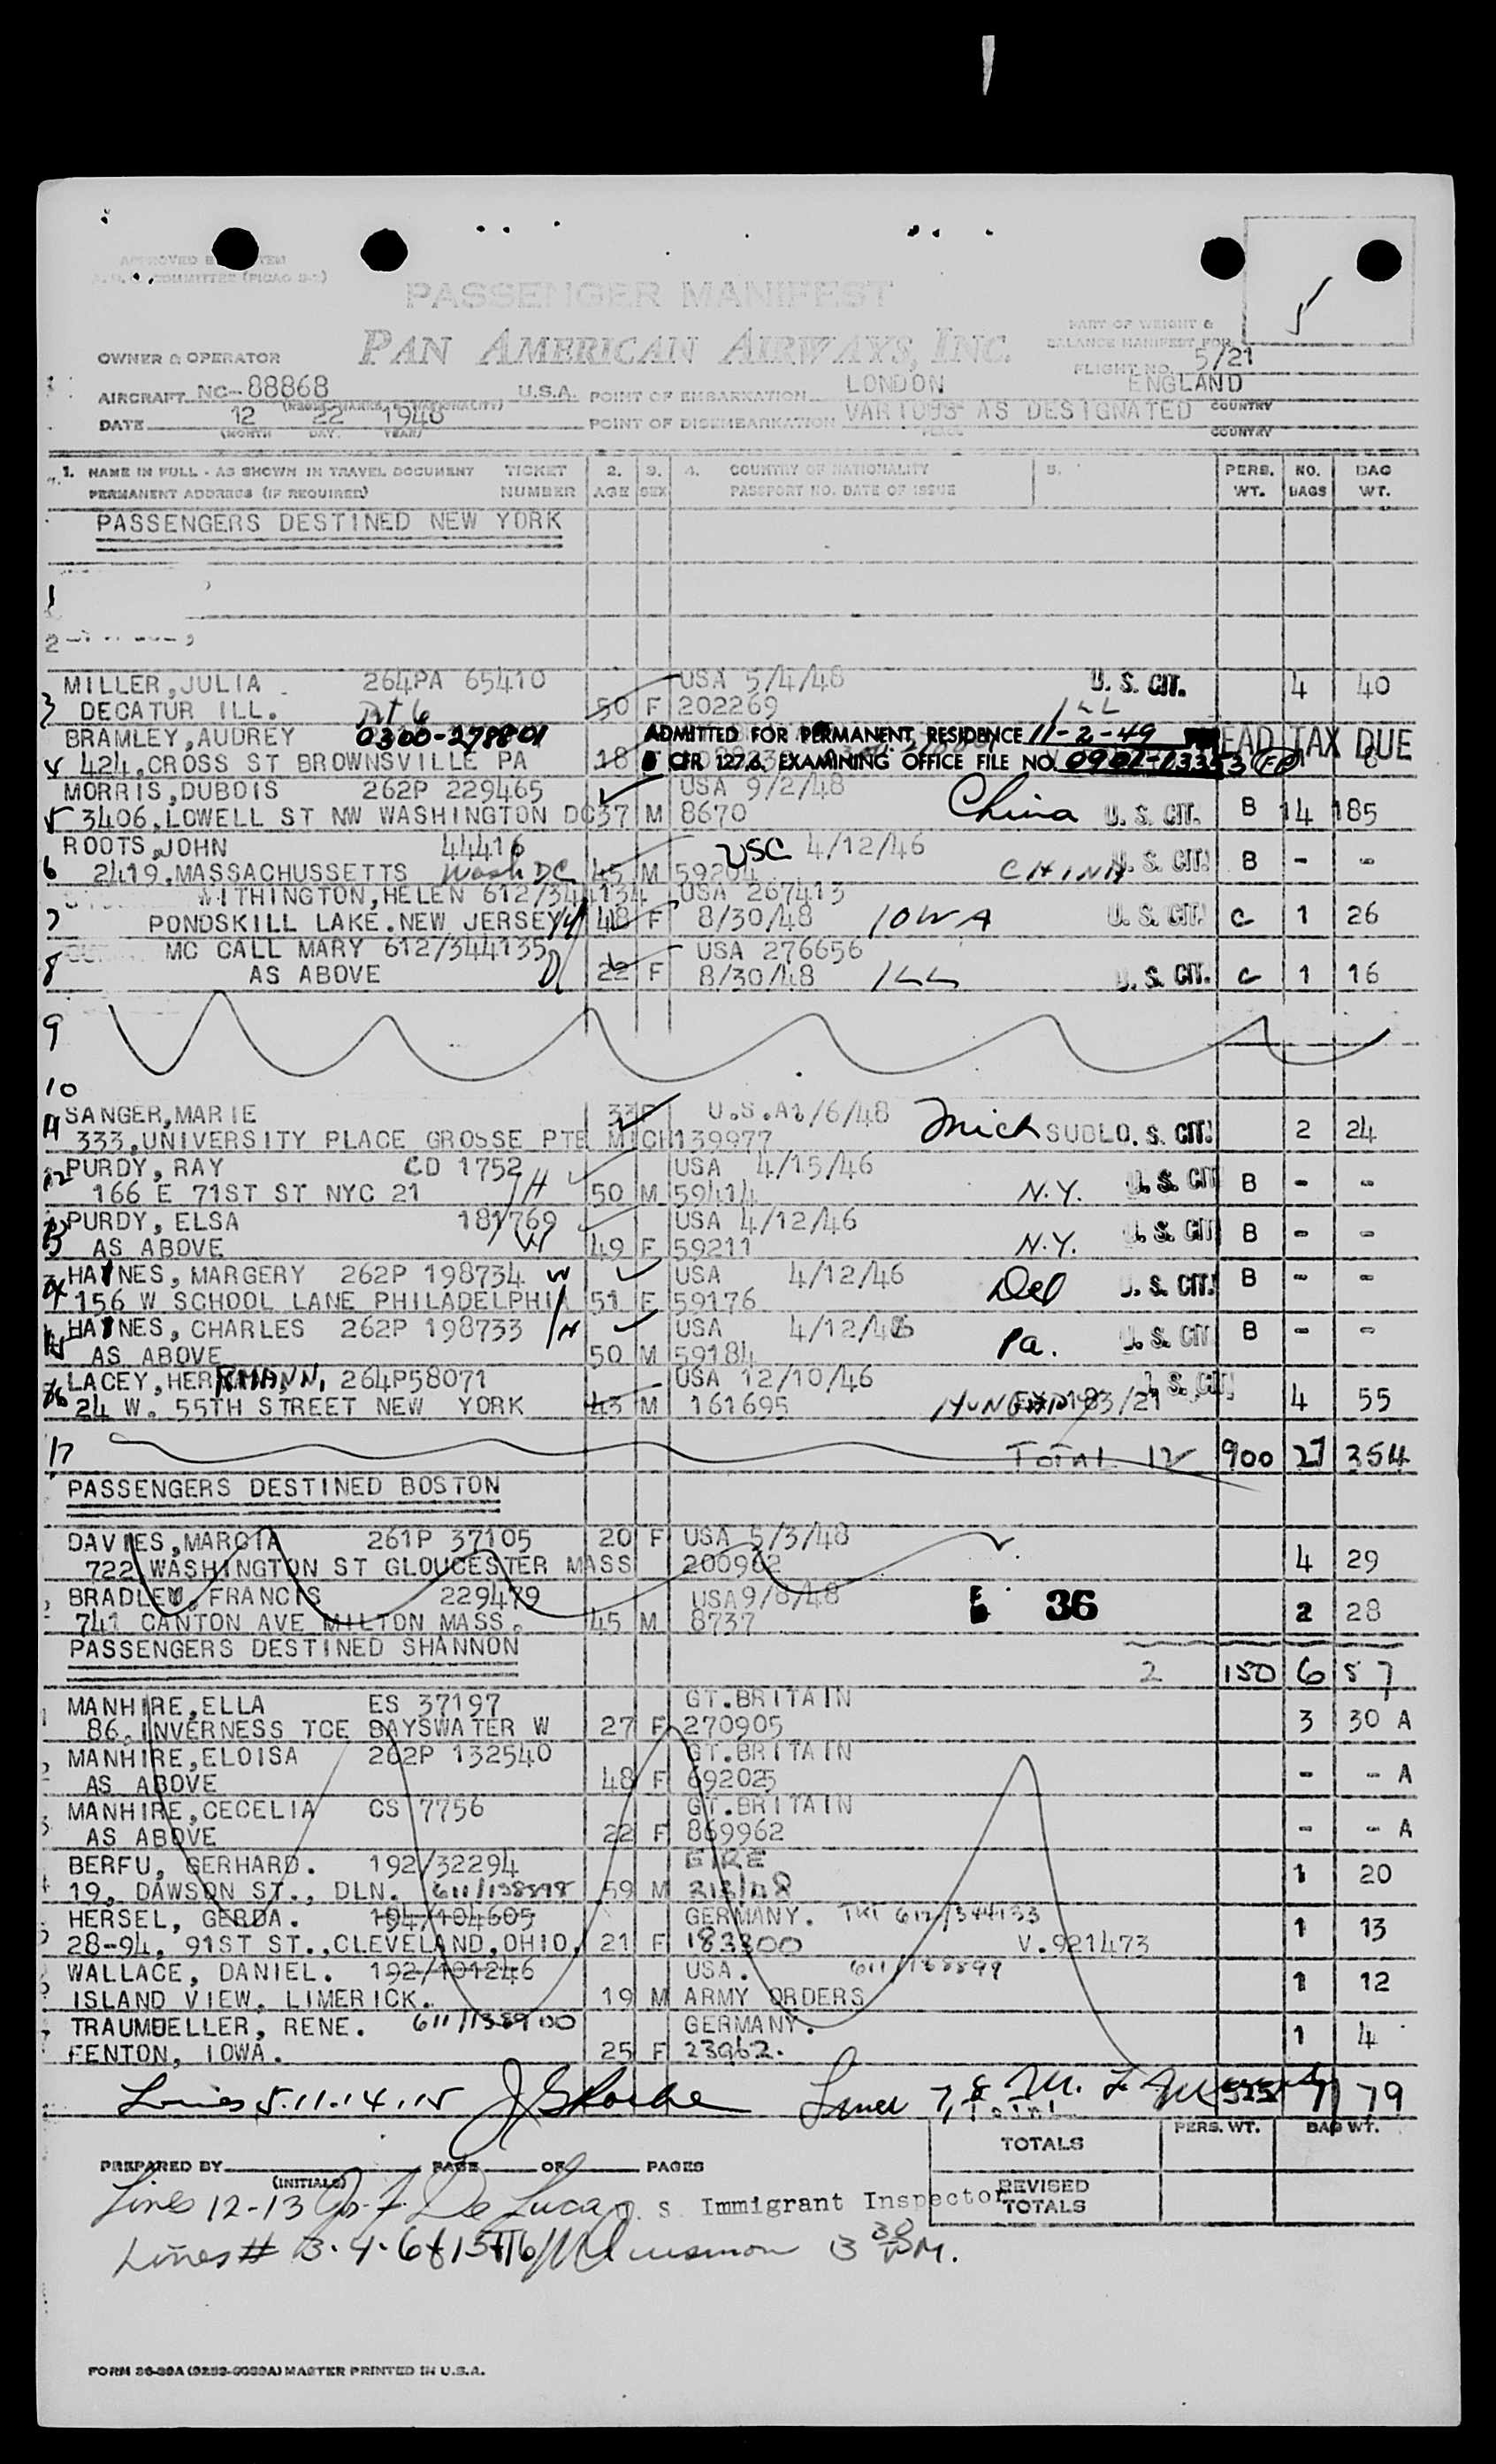 PASSENGER MANIFEST
PART OF WEIGHT &
BALANCE MANIFEST FOR
PAN AMERICAN AIRWAYS, INC.
OWNER & OPERATOR
FLIGHT NO. 5/21
AIRCRAFT NC-88868 U.S.A. POINT OF EMBARKATION LONDON ENGLAND
COUNTRY
DATE 12 22 1948 POINT OF DISEMBARKATION VARIOUS AS DESIGNATED
(MONTH DAY YEAR) PLACE COUNTRY
1. NAME IN FULL - AS SHOWN IN TRAVEL DOCUMENT TICKET 2. 3. 4. COUNTRY OF NATIONALITY 5. PERS. NO. BAG
PERMANENT ADDRESS (IF REQUIRED) NUMBER AGE SEX PASSPORT NO. DATE OF ISSUE WT. BAGS WT.
PASSENGERS DESTINED NEW YORK
1
2
MILLER, JULIA 264PA 65410 USA 5/4/48 U. S. CIT. 4 40
3 DECATUR ILL. 50 F 202269 ILL
BRAMLEY, AUDREY 0300-278801 ADMITTED FOR PERMANENT RESIDENCE 11-2-49 HEAD TAX DUE
424, CROSS ST BROWNSVILLE PA 18 8 CFR 127.6. EXAMINING OFFICE FILE NO. 8
MORRIS, DUBOIS 262P 229465 USA 9/2/48
5 3406, LOWELL ST NW WASHINGTON DC 37 M 8670 China U. S. CIT. B 14 185
ROOTS, JOHN 44416 USC 4/12/46
6 2419, MASSACHUSSETTS Wash DC 45 M 59204 CHINA U. S. CIT. B - -
WITHINGTON, HELEN 612/344134 USA 267413
7 PONDSKILL LAKE. NEW JERSEY 48 F 8/30/48 IOWA U. S. CIT. C 1 26
MC CALL MARY 612/344135 USA 276656
8 AS ABOVE 22 F 8/30/48 ILL U. S. CIT. C 1 16
9
10
SANGER, MARIE 33 F U.S.A. /6/48
11 333, UNIVERSITY PLACE GROSSE PTE MICH 139977 Mich U. S. CIT. 2 24
PURDY, RAY CD 1752 USA 4/15/46
12 166 E 71ST ST NYC 21 50 M 59414 N.Y. U. S. CIT B - -
PURDY, ELSA 181769 USA 4/12/46
13 AS ABOVE 49 F 59211 N.Y. U. S. CIT B - -
HAYNES, MARGERY 262P 198734 W USA 4/12/46
156 W SCHOOL LANE PHILADELPHIA 51 F 59176 Del U. S. CIT. B - -
HAYNES, CHARLES 262P 198733 USA 4/12/46
AS ABOVE 50 M 59184 Pa. U. S. CIT. B - -
LACEY, HERRMANN, 264P58071 USA 12/10/46 U. S. CIT
16 24 W. 55TH STREET NEW YORK 43 M 161695 4 55
17 Total 12 900 27 354
PASSENGERS DESTINED BOSTON
DAVIES, MARCIA 261P 37105 20 F USA 5/3/48
722 WASHINGTON ST GLOUCESTER MASS 200962 4 29
BRADLEY, FRANCIS 229479 USA 9/8/48 36
741 CANTON AVE MILTON MASS. 45 M 8737 2 28
PASSENGERS DESTINED SHANNON
2 150 6 57
MANHIRE, ELLA ES 37197 GT.BRITAIN
86, INVERNESS TCE BAYSWATER W 27 F 270905 3 30 A
MANHIRE, ELOISA 262P 132540 GT.BRITAIN
AS ABOVE 48 F 692025 - - A
MANHIRE, CECELIA CS 7756 GT.BRITAIN
AS ABOVE 22 F 869962 - - A
BERFU, GERHARD. 192/32294 EIRE
19, DAWSON ST., DLN. 611/138898 59 M 1 20
HERSEL, GERDA. 194/104605 GERMANY. TKT 612/344133
28-94, 91ST ST., CLEVELAND, OHIO. 21 F 183300 V.921473 1 13
WALLACE, DANIEL. 192/101246 USA. 611/138899
ISLAND VIEW, LIMERICK. 19 M ARMY ORDERS 1 12
TRAUMUELLER, RENE. 611/138900 GERMANY.
FENTON, IOWA. 25 F 23962. 1 4
Lines 5.11.14.15 Lines 7, 8 525 7 79
TOTALS PERS. WT. BAG WT.
PREPARED BY PAGE OF PAGES
(INITIALS)
REVISED
TOTALS
Lines 12-13 De Luca U. S. Immigrant Inspector
Lines # 3.4.6 & 15+16 3 30 PM.
FORM 36-39A (9253-0039A) MASTER PRINTED IN U.S.A.